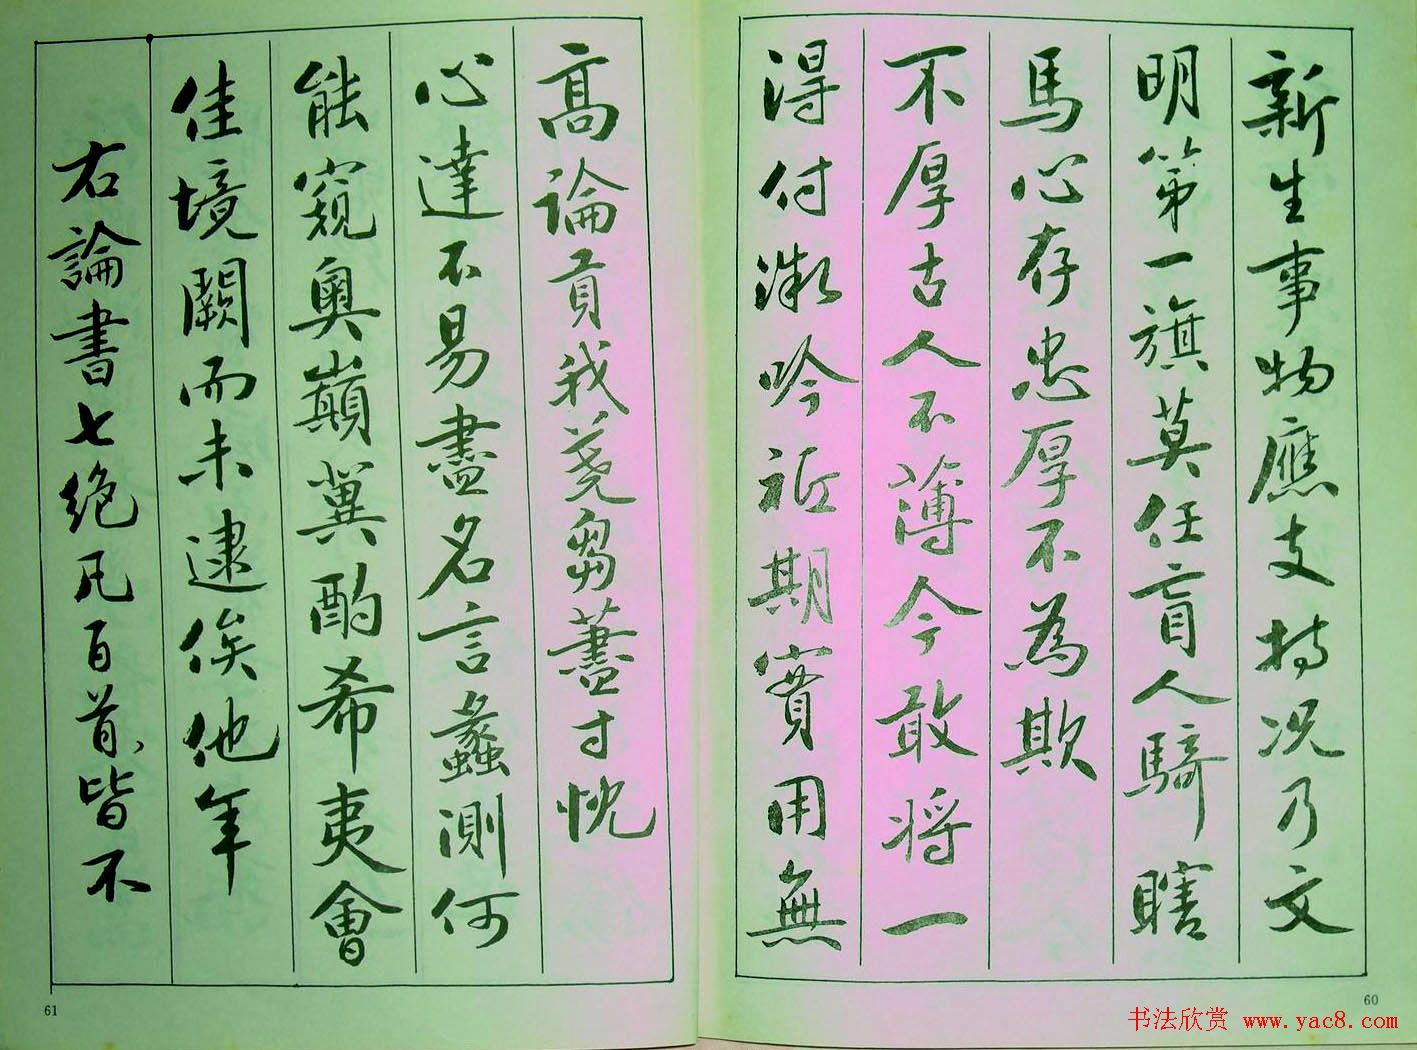 新生事物應支持况乃文
明第一旗莫任盲人騎瞎
馬心存忠厚不為欺
不厚古人不薄今敢將一
得付微吟祗期實用無
高論貢我蕘芻藎寸忱
心達不易盡名言蠡測何
能窺奧巔冀酌希夷會
佳境闕而未逮俟他年
右論書七絶凡百首皆不
60
61
书法欣赏 www.yac8.com